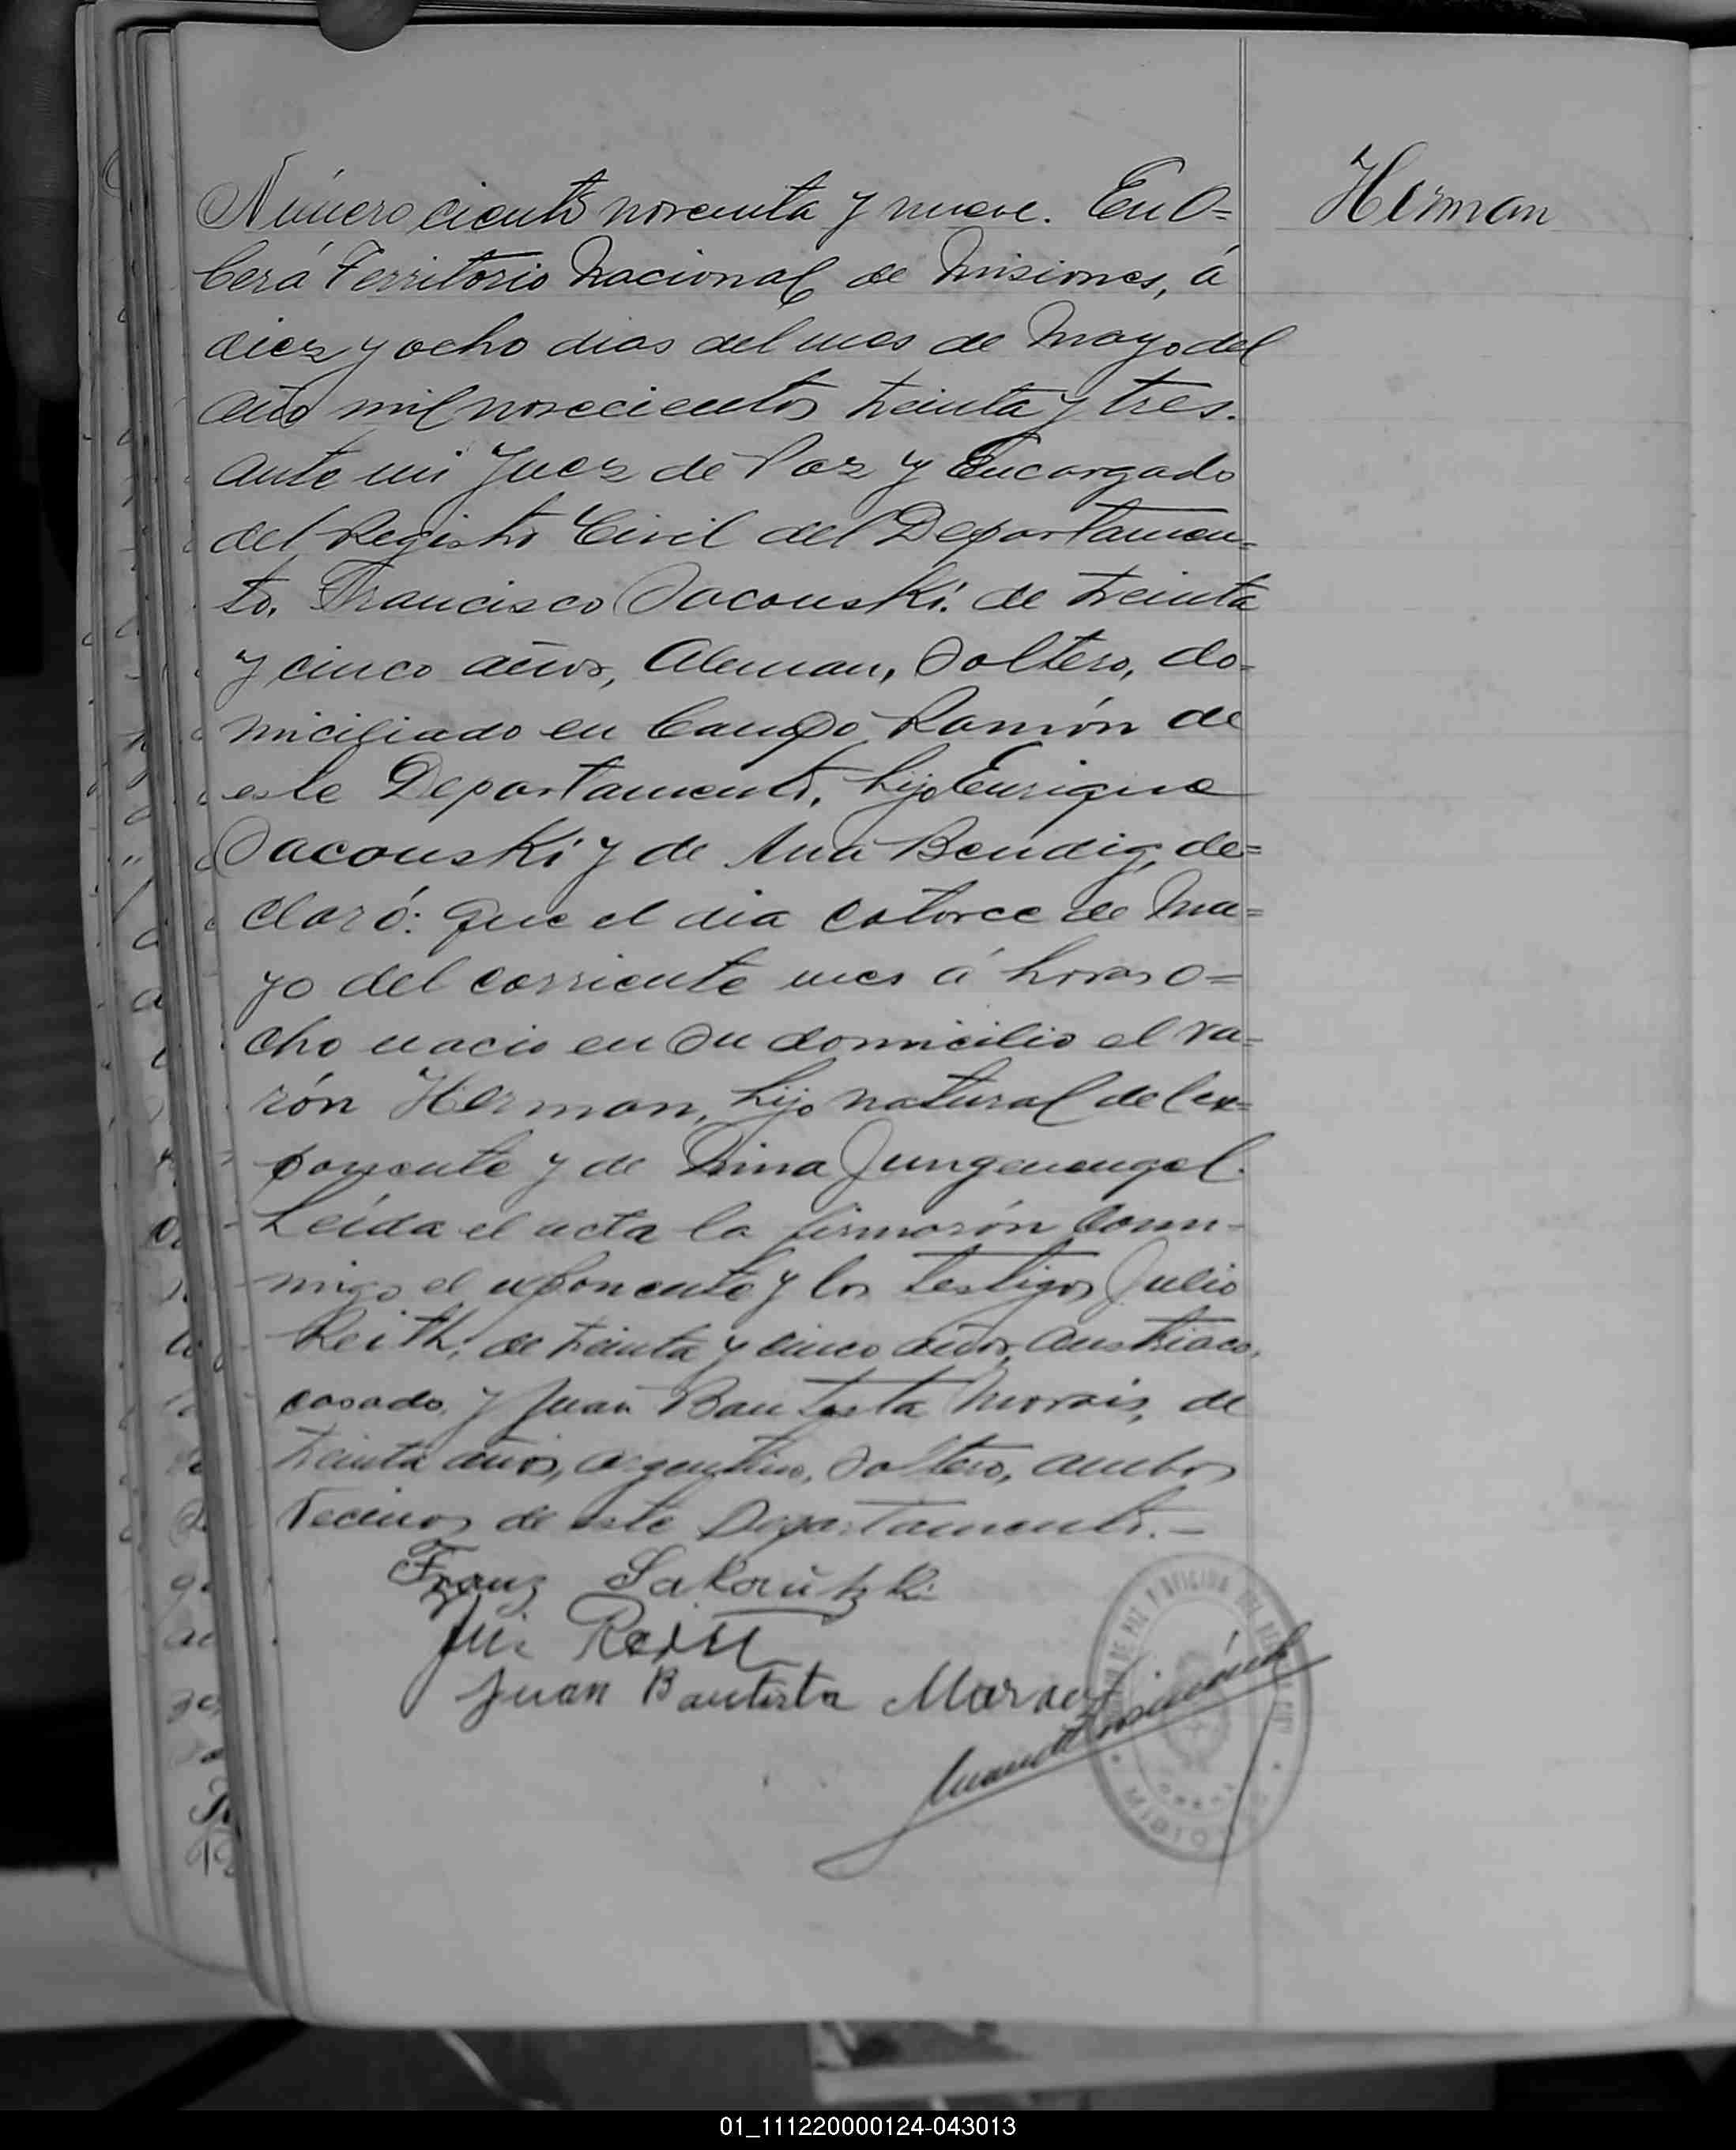 Herman
Número ciento noventa y nueve. En O=
berá Territorio Nacional de Misiones, á
diez y ocho dias del mes de Mayo del
año mil novecientos treinta y tres.
ante mi Juez de Paz y Encargado
del Registro Civil del Departamen=
to, Francisco Sacouski. de treinta
y cinco años, Aleman, Soltero, do=
miciliado en Campo Ramón de
este Departamento, hijo Enrique
Sacouski y de Ana Bendig, de=
claró: que el dia catorce de Ma=
yo del corriente mes á horas o=
cho nacio en su domicilio el va=
rón Herman, hijo natural del ex=
ponente y de Mina Jungenengel.
Leída el acta la firmarón con=
migo el exponente y los testigos Julio
Reith, de treinta y cinco años, austriaco,
casado, y Juan Bautista Morais, de
treinta años, argentino, Soltero, ambos
vecinos de este Departamento.—
Franz Sakautzki
Reith
Juan Bautista
01_111220000124-043013